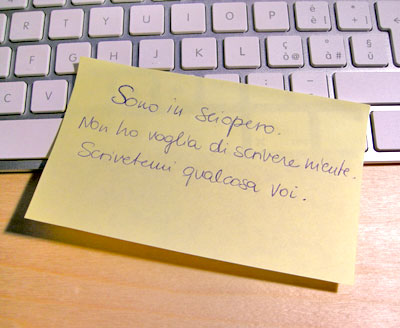 R T Y U I O P è é [ * ] +
D F G H J K L ç ò @ ° à # § ù
C V
Sono in sciopero.
Non ho voglia di scrivere niente.
Scrivetemi qualcosa voi.